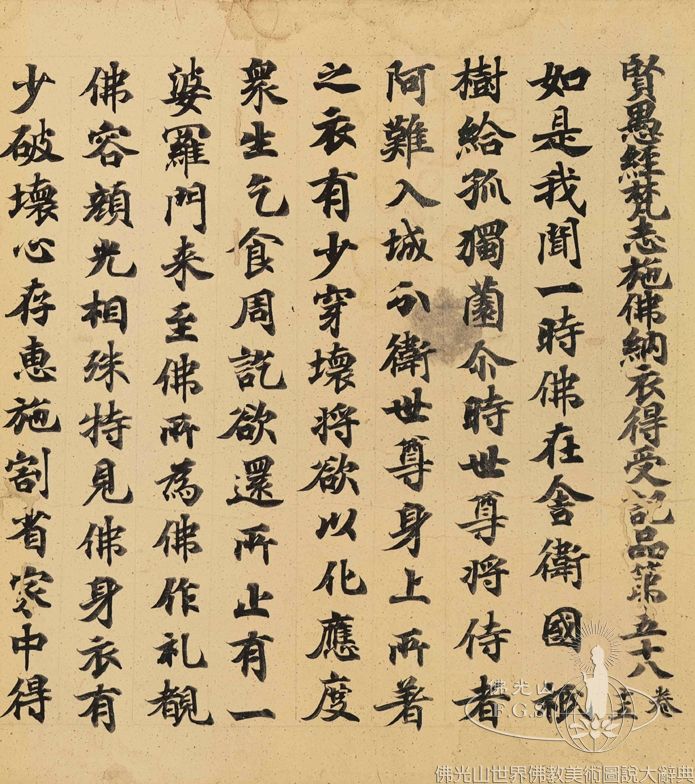 賢愚經梵志施佛納衣得受記品第五十八 卷
如是我聞一時佛在舍衛國祇
樹給孤獨薗尒時世尊將侍者
阿難入城分衛世尊身上所著
之衣有少穿壞將欲以化應度
衆生乞食周訖欲還所止有一
婆羅門来至佛所為佛作礼覩
佛容顔光相殊特見佛身衣有
少破壞心存惠施割省家中得
佛光山
F.G.S.
佛光山世界佛教美術圖說大辭典